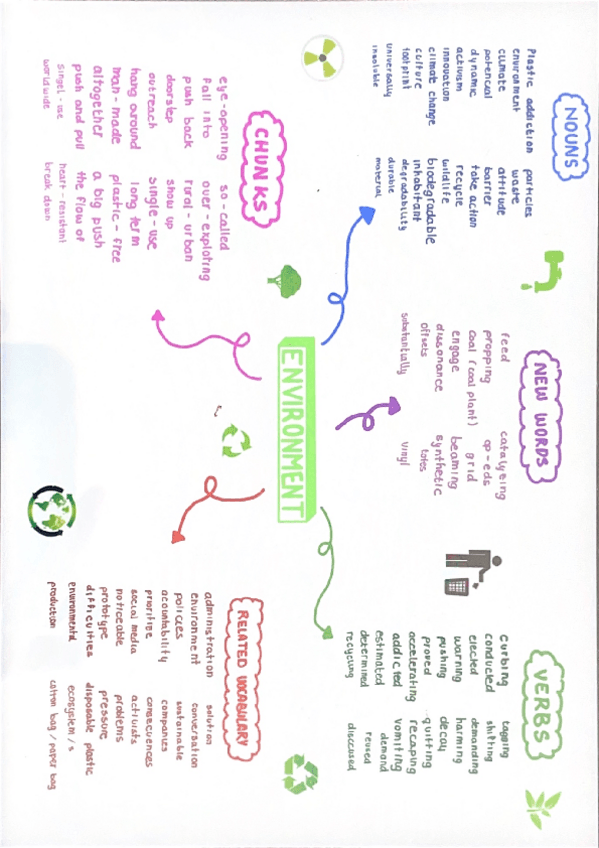 NOUNS
Plastic addiction
environment
climate
potencial
dynamic
activism
innovation
climate change
culture
footprint
universally
insoluble
particles
waste
attitude
barrier
take action
recycle
wildlife
biodegradable
inhabitant
degradability
durable
material
NEW WORDS
feed
propping
coal (coal plant)
engage
dissonance
offsets
substantially
catalyting
op-eds
grid
beaming
synthetic
totes
vinyl
VERBS
curbing
conducted
elected
warning
pushing
proved
accelerating
addicted
estimated
determined
recycling
tagging
shifting
demanding
harming
decay
quitting
recaping
vomiting
demand
reused
discccused
ENVIRONMENT
CHUNKS
eye-opening
fall into
push back
doorstep
outreach
hang around
man-made
altogether
push and pull
singel-use
worldwide
so-called
over-exploting
rural-urban
show up
single-use
long term
plastic-free
a big push
the flow of
heart-resistant
break down
RELATED VOCABULARY
administration
environment
policces
acountability
prioritise
social media
noticeable
prototype
difficulties
environmental
production
solution
conversation
sustainable
companies
consecuences
activists
problems
pressure
disposable plastic
ecosystem/s
cotton bag / paper bag